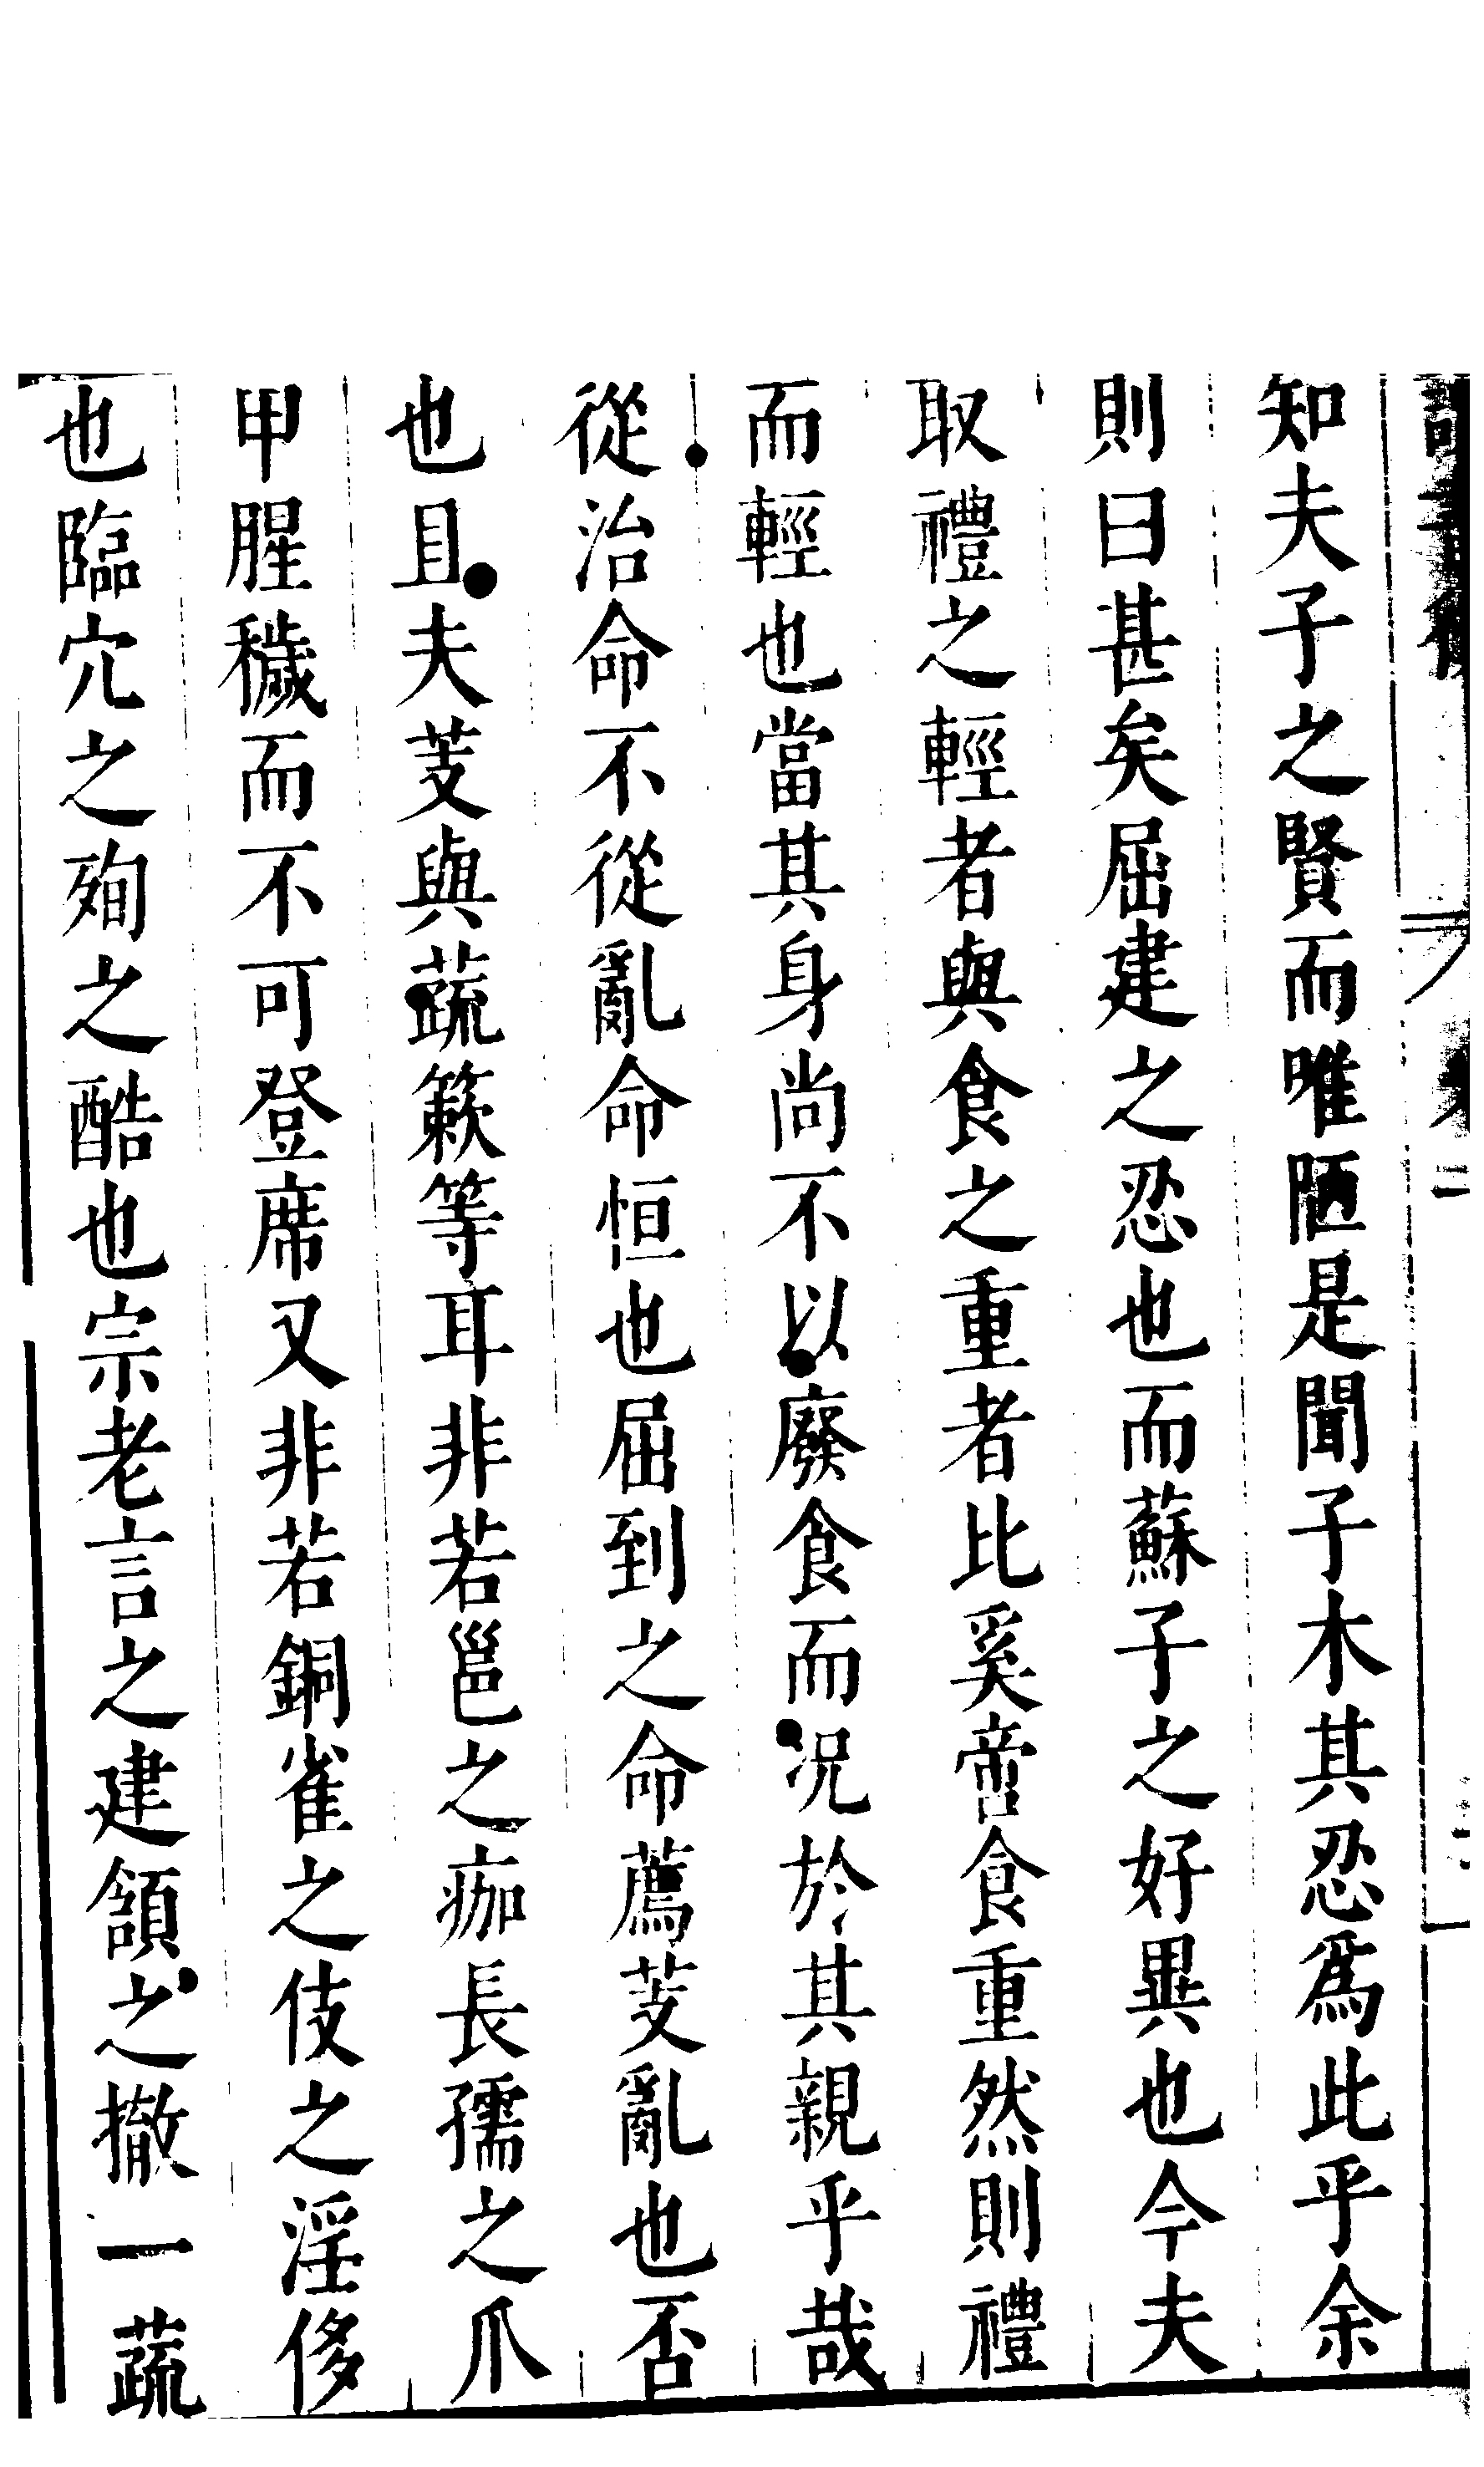 知夫子之賢而唯陋是聞子木其忍爲此乎余
則曰甚矣屈建之忍也而蘇子之好異也今夫
取禮之輕者與食之重者比奚啻食重然則禮
而輕也當其身尚不以廢食而况於其親乎哉
從治命不從亂命恒也屈到之命薦芰亂也否
也且夫芰與蔬簌等耳非若邕之痂長孺之爪
甲腥穢而不可登席又非若銅雀之伎之淫侈
也臨穴之殉之酷也宗老言之建頷之撤一蔬